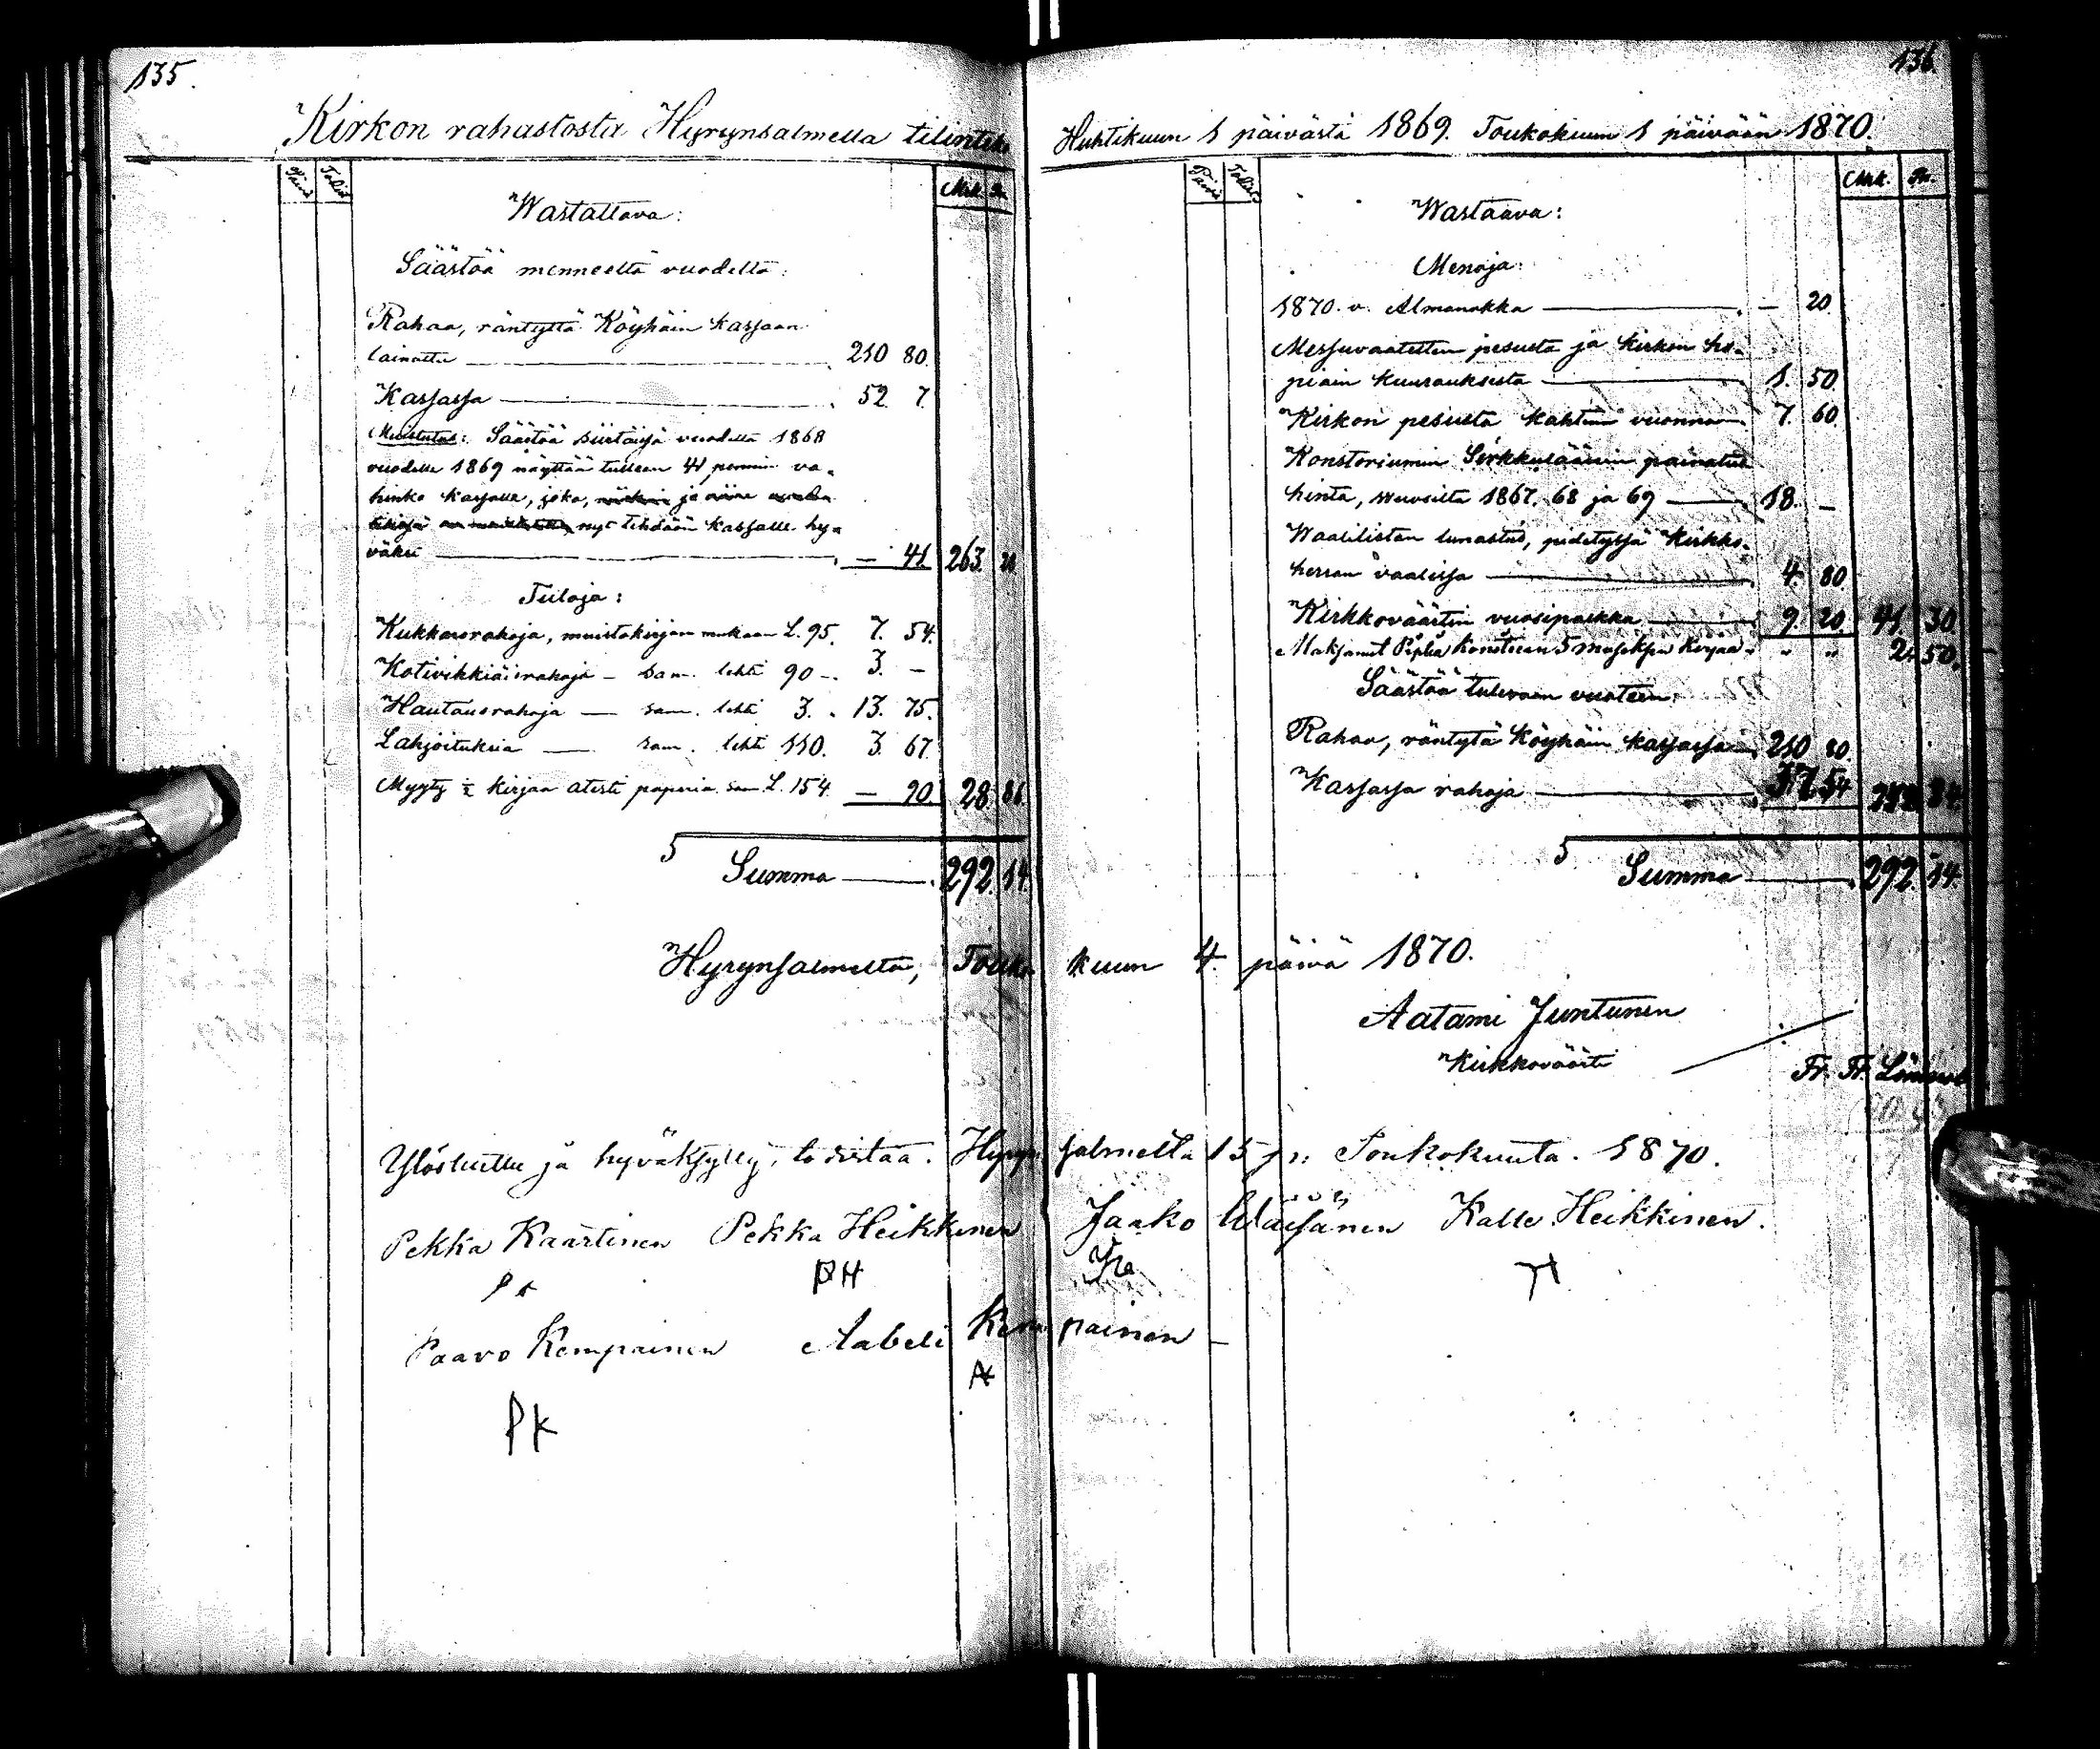 135.
Kirkon rahastosta Hyrynsalmella tilinteko
Päivä Tosite Mrk. P.
Wastattava:
Säästöä menneeltä vuodelta:
Rahaa, räntyttä Köyhäin kassaan
lainattu — 210 80.
Kassassa — 52. 7.
Muistutus: Säästöä siirtäissä vuodelta 1868
vuodelle 1869 näyttää tulleen 41 pennin va-
hinko kassalle, joka, ja
nyt tehdään kassalle hy-
väksi — — 41. 263. 28
Tuloja:
Kukkarorahoja, muistokirjan mukaan L. 95. 7. 54.
Kotivihkiäisrahoja — sam. lehti 90 — 3. —
Hautausrahoja — sam. lehti 3. . 13. 75.
Lahjoituksia — sam. lehti 110. 3. 67.
Myyty ½ kirjaa atesti paperia sam L. 154. — 90. 28. 86.
Summa — 292. 14.
136.
Huhtikuun 1 päivästä 1869. Toukokuun 1 päivään 1870.
Päivä Tosite Mrk. P.
Wastaava:
Menoja:
1870. v. Almanakka — — 20.
Messuvaatetten pesusta ja kirkon ho-
piain kuurauksesta — 1. 50.
Kirkon pesusta kahtena vuonna — 7. 60.
Konstoriumin Sirkkuläärein painatus
hinta, vuosilta 1867, 68 ja 69 — 18. —
Waalilistan lunastus, pidetyssä Kirkko-
herran vaalissa — 4. 80.
Kirkkoväärtin vuosipalkka — 9. 20. 41. 30.
Maksanut Piplia 5 Kirjaa. " " 2. 50.
Säästöä tulevaan vuoteen:
Rahaa, räntytä Köyhäin kassassa — 210 80.
Kassassa rahoja — 37 54 34
Summa — 292. 14.
Hyrynsalmella, Touko kuun 4. päivä 1870.
Aatami Juntunen
Kirkkoväärti
Fr. Fr.
Ylösluettu ja hyväksytty, todistaa. Hyryn salmella 15 p: Toukokuuta. 1870.
Pekka Kaartinen Pekka Heikkinen Jaako Wäisänen Kalle Heikkinen.
PK PH
Paavo Kempainen Aabeli Kem painen —
AK
PK